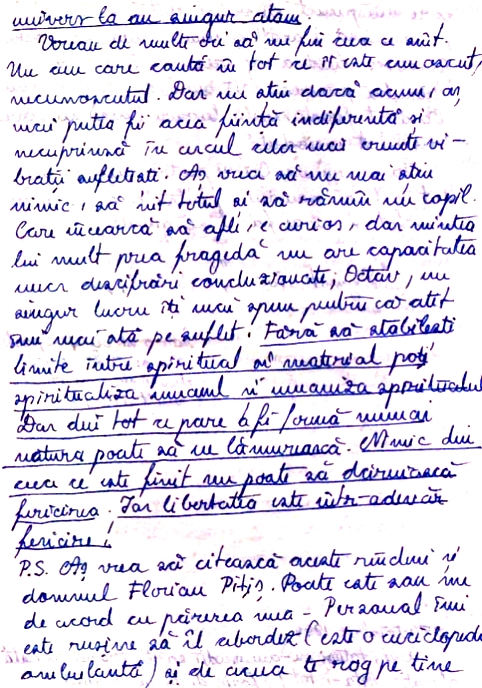 univers la un singur atom.
Voream de multe ori să nu fiu ceea ce sînt.
Un om care caută în tot ce îi este cunoscut,
necunoscutul. Dar nu știu dacă acum, aș
mai putea fi acea ființă indiferentă și
necuprinsă în cercul celor mai crunte vi-
brații sufletești. Aș vrea să nu mai știu
nimic, să uit totul și să rămîn un copil.
Care încearcă să afle, e curios, dar mintea
lui mult prea fragedă nu are capacitatea
unei descifrări concluzionate, Octav, un
singur lucru îți mai spun pentru că atît
îmi mai stă pe suflet. Fără să stabilești
limite între spiritual și material poți
spiritualiza umanul și umaniza spiritualul
Dar din tot ce pare a fi formă numai
natura poate să ne lămurească. Nimic din
ceea ce este finit nu poate să dăinuiască
fericirea. Iar libertatea este într-adevăr
fericire!
P.S. Aș vrea să citească aceste rînduri și
domnul Florian Pitiș. Poate este sau nu
de acord cu părerea mea - Personal îmi
este rușine să îl abordez (este o enciclopedie
ambulantă) și de aceea te rog pe tine